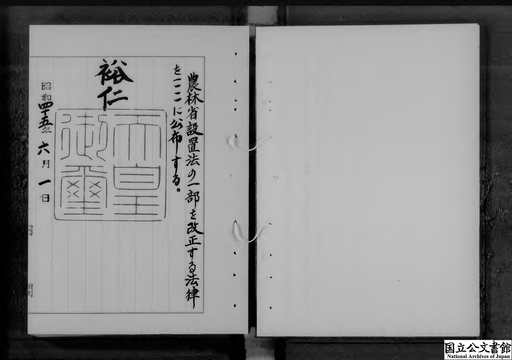 農林省設置法の一部を改正する法律
をここに公布する。
裕仁
天皇
御璽
昭和四十五年六月一日
国立公文書館
National Archives of Japan